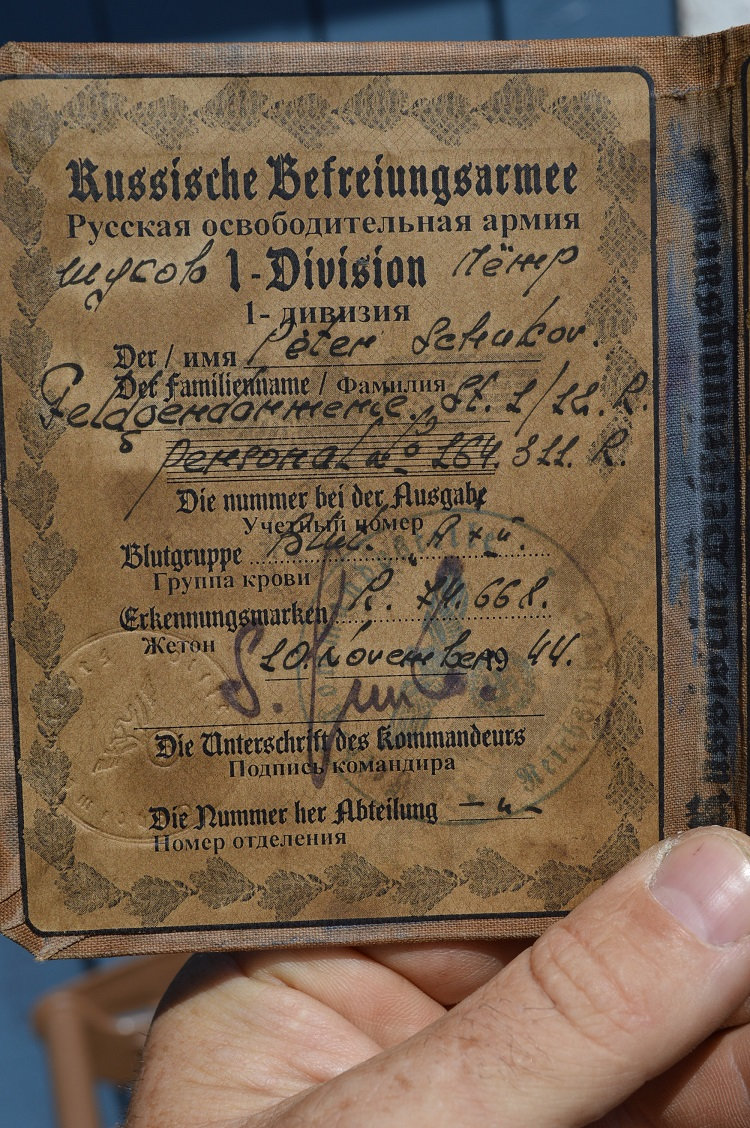 Russische Befreiungsarmee
Русская освободительная армия
шуков 1-Division Пётр
1- дивизия
Der / имя Peter Schukov.
Der Familienname / Фамилия
Feldgendarmerie. St. 1/12. R.
Personal No 164. 311. R.
Die nummer bei der Ausgabe
Учетный номер
Blutgruppe
Группа крови
Erkennungsmarken R. 74. 668.
Жетон
10. November 19 44.
Die Unterschrift des Kommandeurs
Подпись командира
Die Nummer her Abteilung
Номер отделения